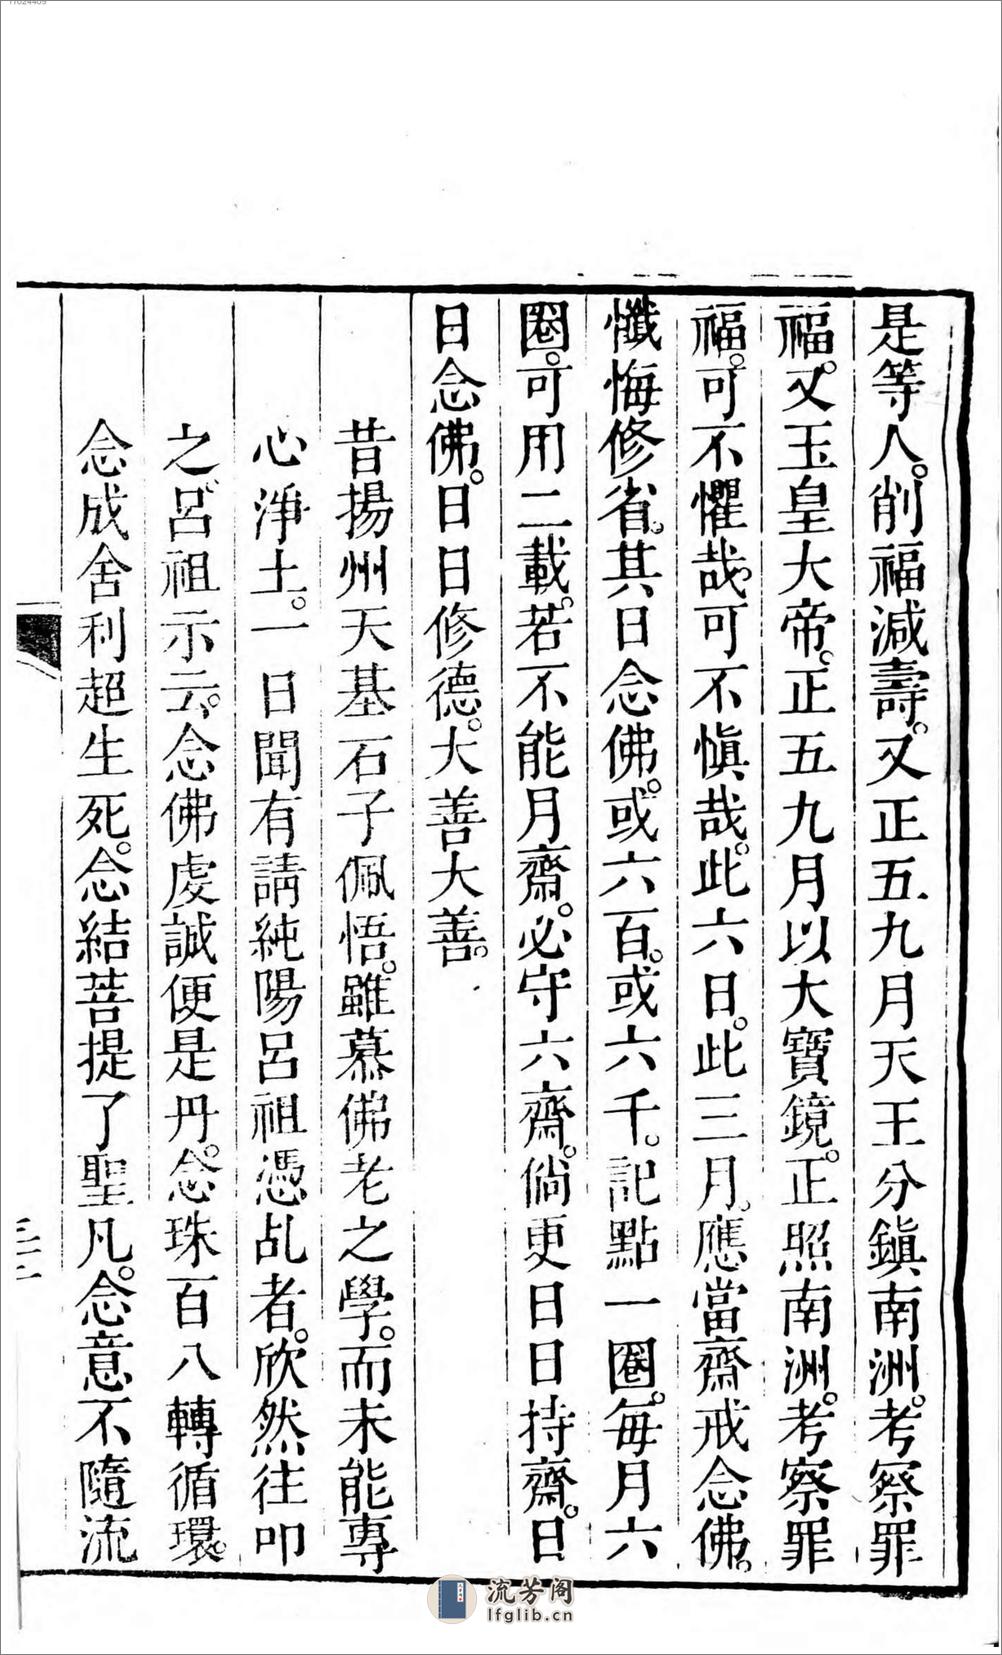 是等人。削福減壽。又正五九月天王分鎮南洲。考察罪
福。又玉皇大帝。正五九月以大寶鏡。正照南洲。考察罪
福。可不懼哉。可不慎哉。此六日。此三月。應當齋戒念佛。
懺悔修省。其日念佛。或六百。或六千。記點一圈。每月六
圈。可用二載。若不能月齋。必守六齋。倘更日日持齋。日
日念佛。日日修德。大善大善。
昔揚州天基石子佩悟。雖慕佛老之學。而未能專
心淨土。一日聞有請純陽呂祖憑乩者。欣然往叩
之。呂祖示云。念佛虔誠便是丹。念珠百八轉循環。
念成舍利超生死。念結菩提了聖凡。念意不隨流
流芳阁
lfglib.cn